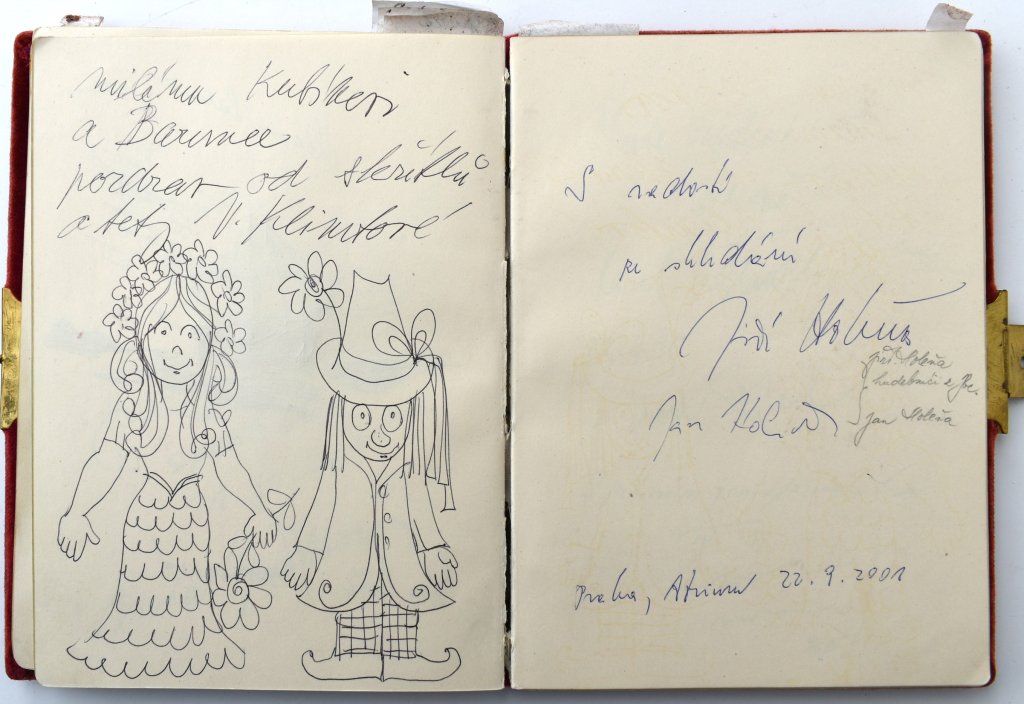 milému Kubíkovi
a Barunce
pozdrav od skřítků
a tety V. Klimtové
S radostí
ze shledání
Jiří Holeňa
Jiří Holeňa
hudebníci z
Jan Holeňa
Jan
Praha, Atrium 22. 9. 2001